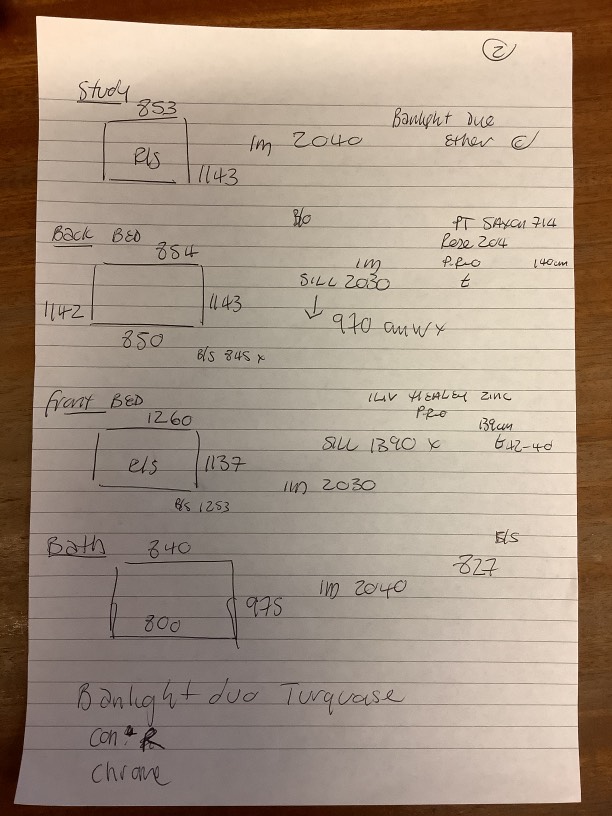 2
Study
853
Banlight Due
Ether
1m 2040
R/s
1143
B/o
PT SAXON 714
Back BED
Rose 204
854
1m
P.RO
140cm
SILL 2030
t
1142
1143
970 anwx
850
B/S 845 x
Front BED
HEALEY ZINC
1260
PRO
139cm
SILL 1390 x
R/s
1137
1m 2030
B/S 1253
Bath
840
827
1m 2040
975
800
Banlight duo Turquase
con R
Chrome